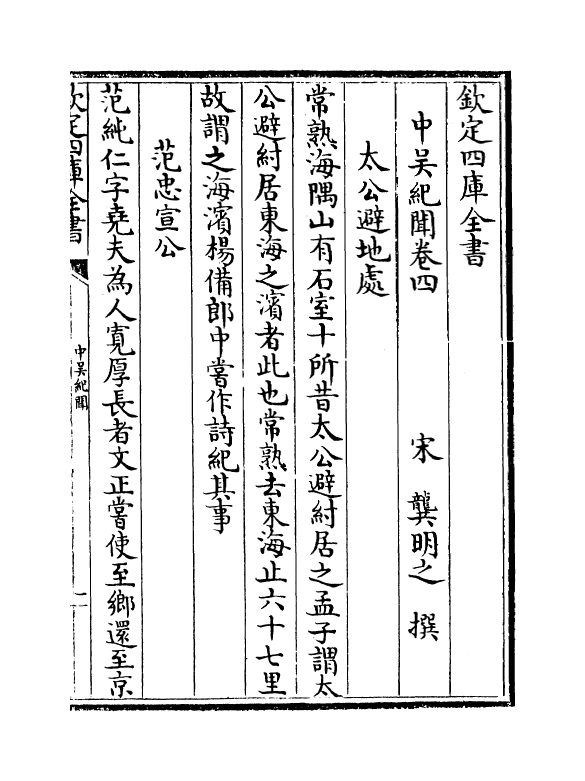 欽定四庫全書
中吳紀聞卷四　宋　龔明之　撰
太公避地處
常熟海隅山有石室十所昔太公避紂居之孟子謂太
公避紂居東海之濱者此也常熟去東海止六十七里
故謂之海濱楊備郎中嘗作詩紀其事
范忠宣公
范純仁字堯夫為人寬厚長者文正嘗使至鄉還至京
欽定四庫全書
中吳紀聞
一